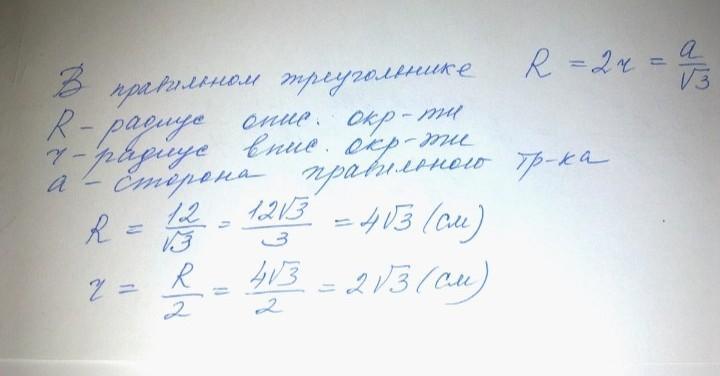 В правильном треугольнике R = 2r = a/√3
R - радиус опис. окр-ти
r - радиус впис. окр-ти
a - сторона правильного тр-ка
R = 12/√3 = 12√3/3 = 4√3 (см)
r = R/2 = 4√3/2 = 2√3 (см)